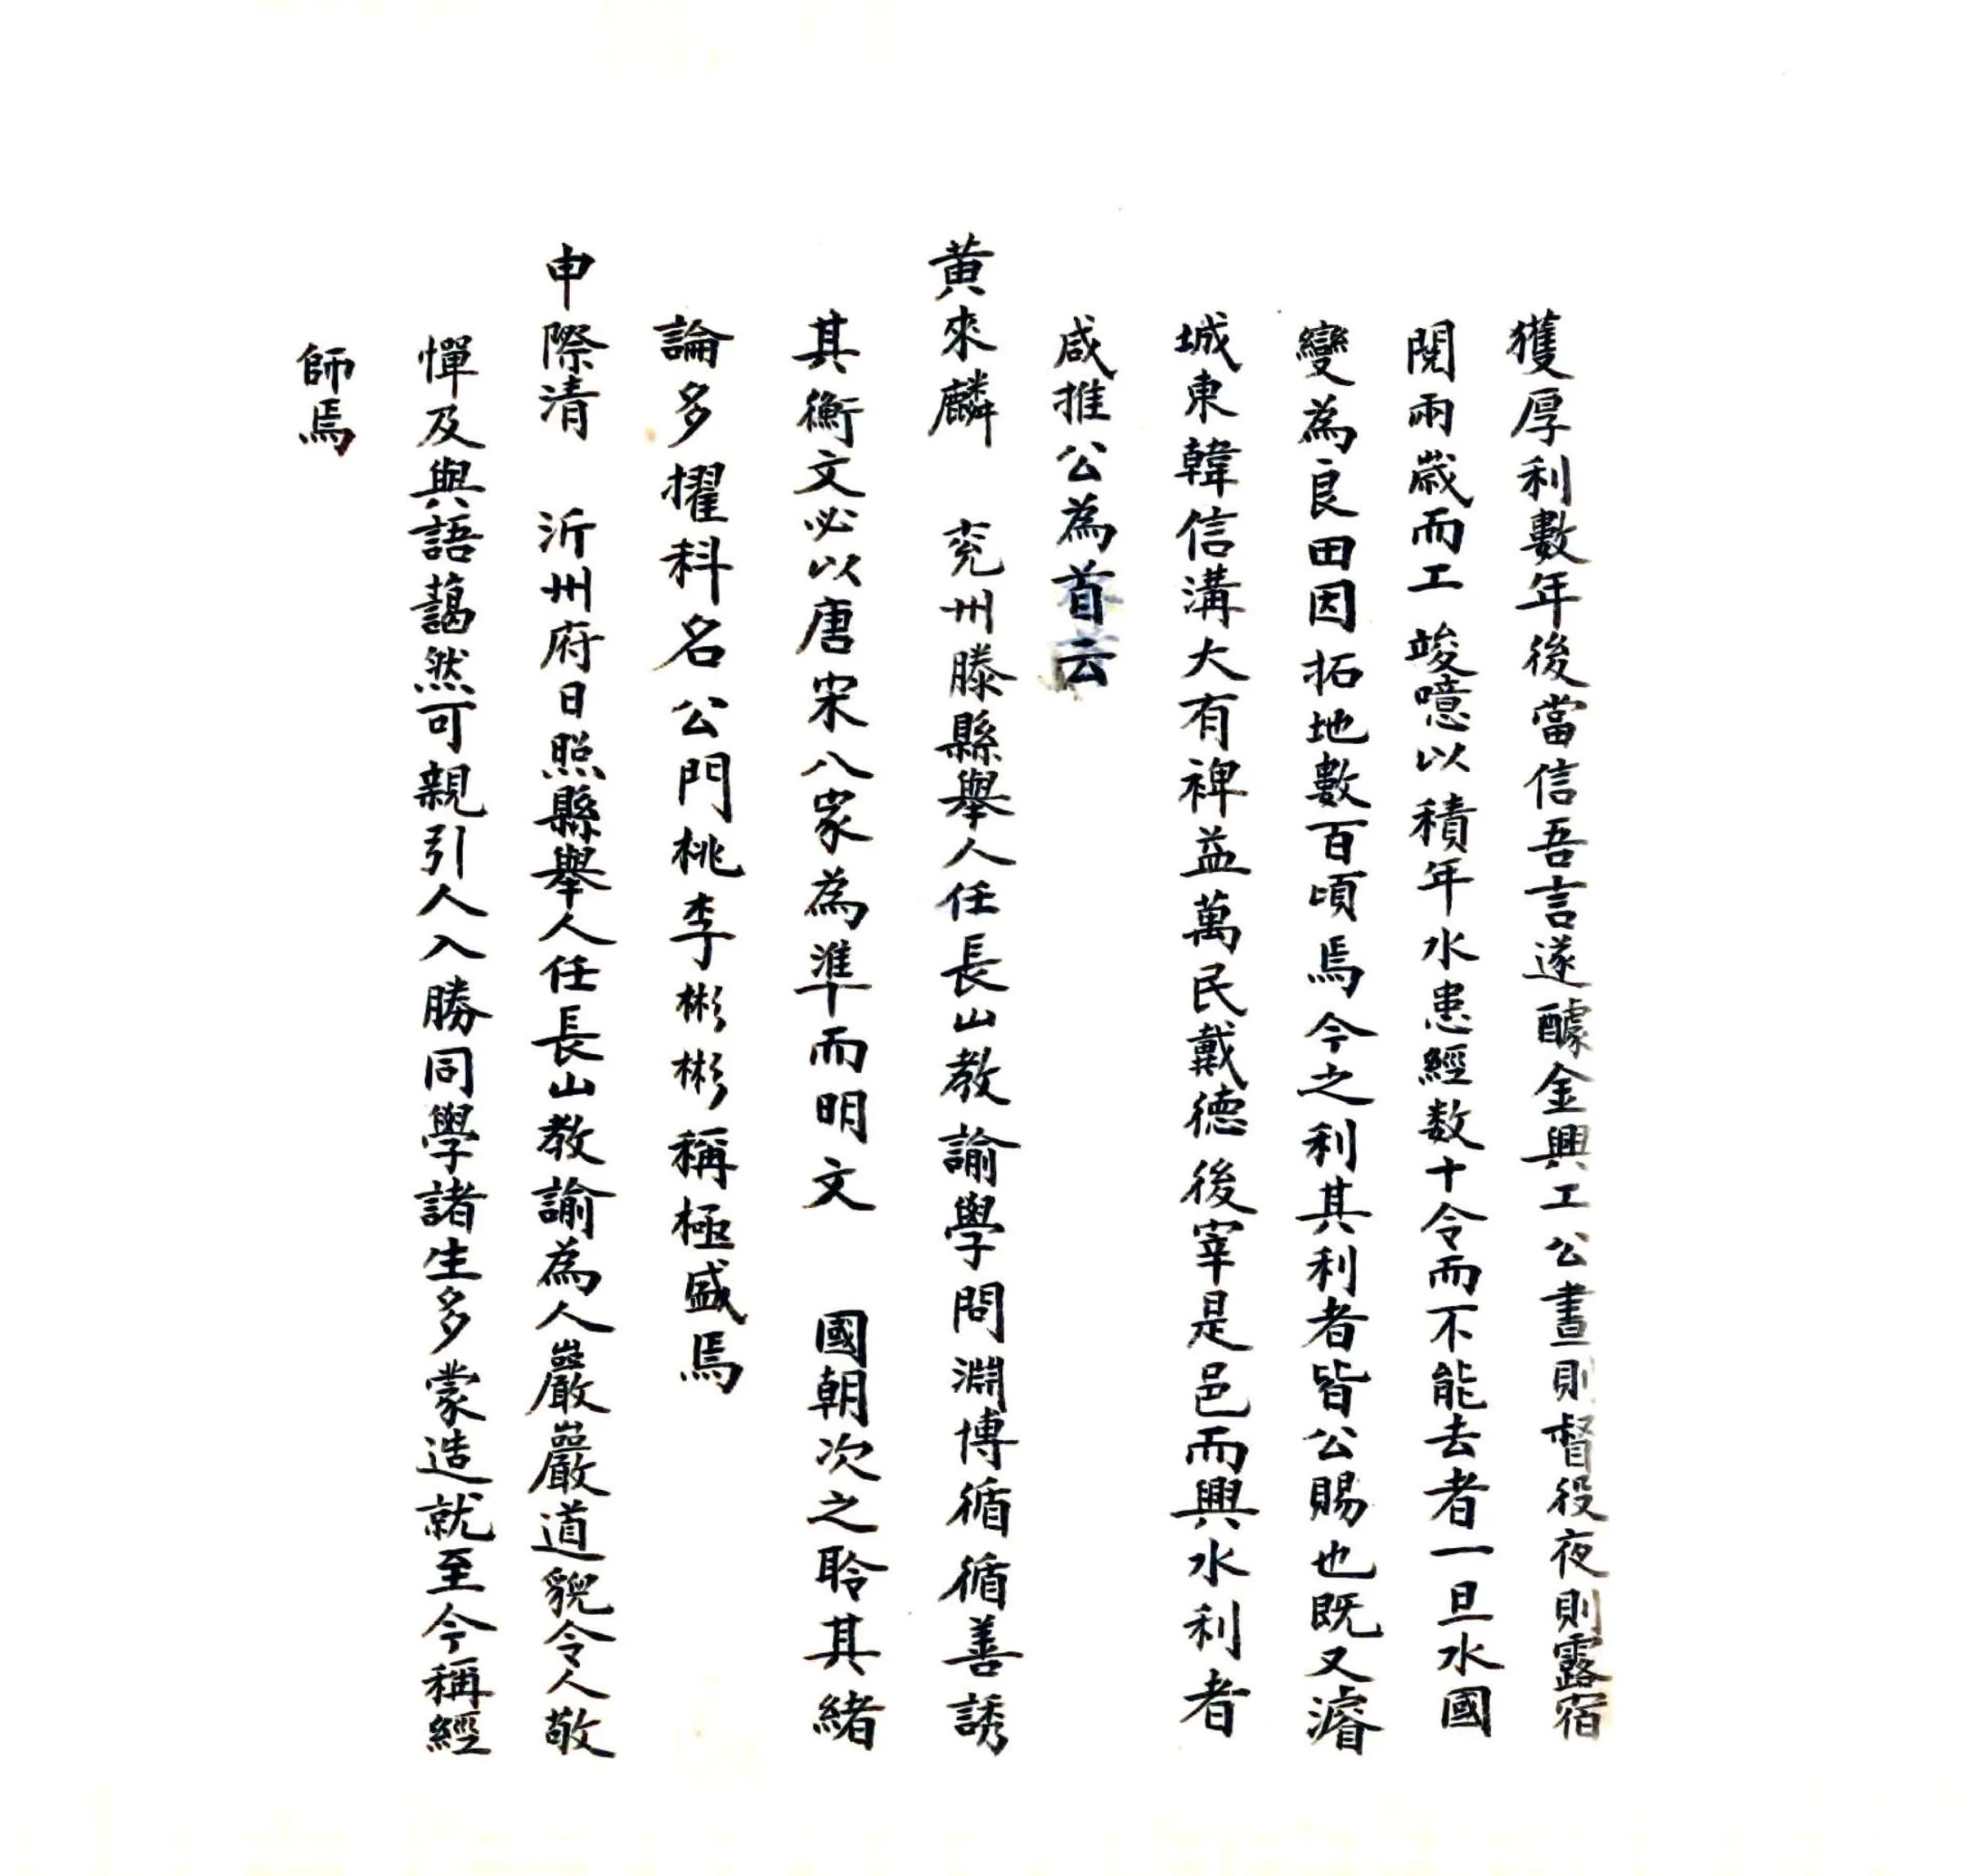 獲厚利數年後當信吾言遂醵金興工公晝則督役夜則露宿
閱兩歲而工竣噫以積年水患經数十令而不能去者一旦水國
變為良田因拓地數百頃焉今之利其利者皆公賜也既又濬
城東韓信溝大有裨益萬民戴德後宰是邑而興水利者
咸推公為首云
黄來麟 兖州滕縣舉人任長山教諭學問淵博循循善誘
其衡文必以唐宋八家為準而明文 國朝次之聆其緒
論多擢科名公門桃李彬彬稱極盛焉
申際清 沂州府日照縣舉人任長山教諭為人巖巖道貌令人敬
憚及與語藹然可親引人入勝同學諸生多蒙造就至今稱經
師焉